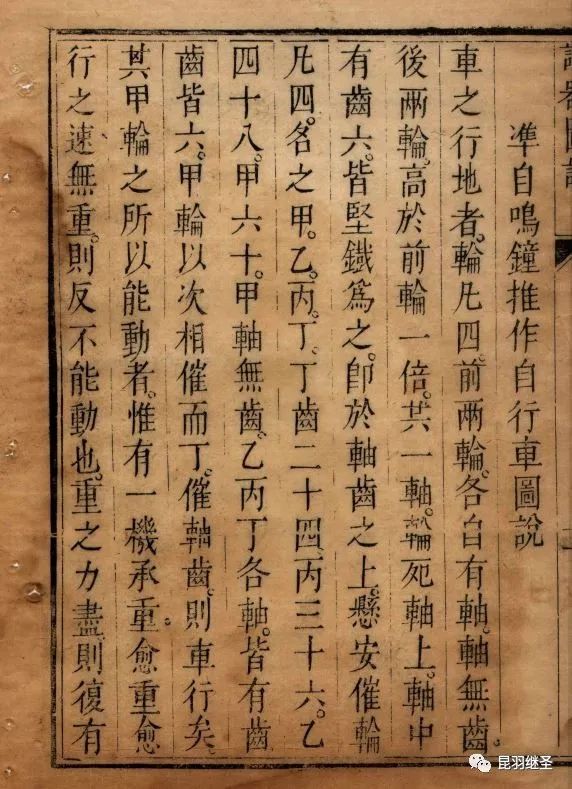 諸器圖說
準自鳴鐘推作自行車圖說
車之行地者。輪凡四。前兩輪。各自有軸。軸無齒。
後兩輪。高於前輪一倍。共一軸。輪死軸上。軸中
有齒六。皆堅鐵爲之。卽於軸齒之上。懸安催輪
凡四。名之甲。乙。丙。丁。丁齒二十四。丙三十六。乙
四十八。甲六十。甲軸無齒。乙丙丁各軸。皆有齒
齒皆六。甲輪以次相催而丁。催軸齒。則車行矣。
其甲輪之所以能動者。惟有一機承重。愈重愈
行之速。無重。則反不能動也。重之力盡。則復有
昆羽继圣